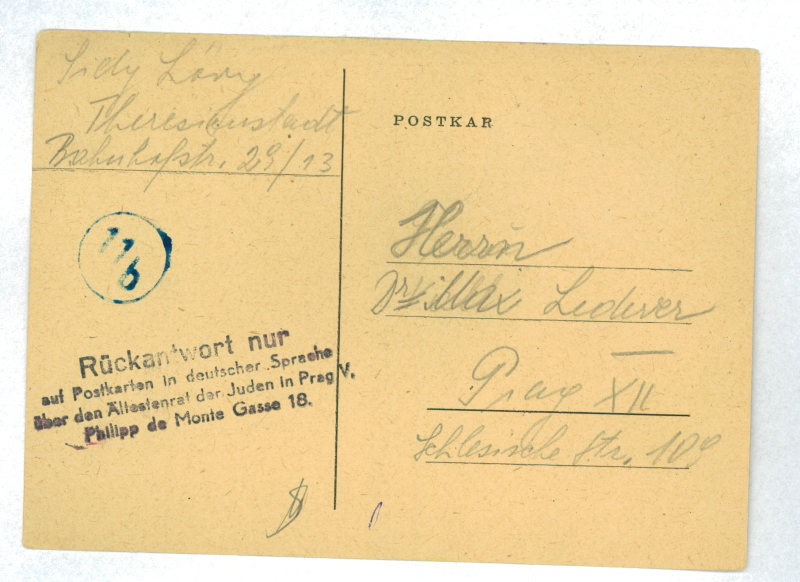 Sidy Löwy
Theresienstadt
Bahnhofstr. 29/13
11
b
Rückantwort nur
auf Postkarten in deutscher Sprache
über den Ältestenrat der Juden in Prag V.
Philipp de Monte Gasse 18.
POSTKAR
Herrn
Dr. Max Lederer
Prag XII
Schlesische Str. 109